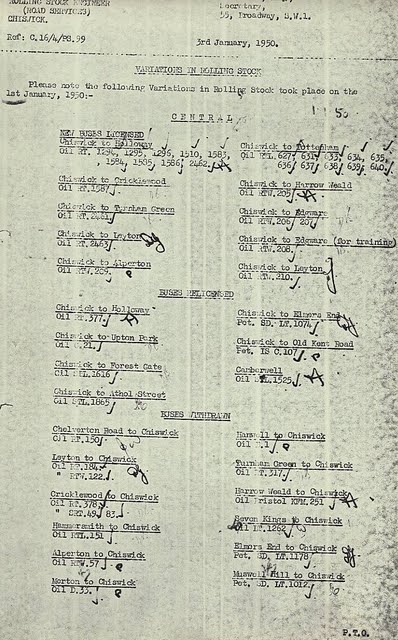 ROLLING STOCK ENGINEER
(ROAD SERVICES)
CHISWICK.
Secretary,
55, Broadway, S.W.1.
Ref: C.16/4/P8.99
3rd January, 1950.
VARIATIONS IN ROLLING STOCK
Please note the following Variations in Rolling Stock took place on the
1st January, 1950:-
1 1 50
CENTRAL
NEW BUSES LICENSED
Chiswick to Holloway
Oil RT. 1290, 1295, 1296, 1510, 1583,
, 1584, 1585, 1586, 2462.
Chiswick to Cricklewood
Oil RT.1587.
Chiswick to Turnham Green
Oil RT.2461
Chiswick to Leyton
Oil RT.2463
Chiswick to Alperton
Oil RTW.209.
Chiswick to Tottenham
Oil RTL.627, 631, 633, 634, 635,
636, 637, 638, 639, 640.
Chiswick to Harrow Weald
Oil RTW.205
Chiswick to Edgware
Oil RTW.206, 207
Chiswick to Edgware (for training)
Oil RTW.208.
Chiswick to Leyton
Oil RTW.210.
BUSES RELICENSED
Chiswick to Holloway
Oil RT.377.
Chiswick to Upton Park
Oil .21.
Chiswick to Forest Gate
Oil STL.1616
Chiswick to Athol Street
Oil STL.1865
Chiswick to Elmers End
Pet. SD. LT.1074
Chiswick to Old Kent Road
Pet. IS C.107
Camberwell
Oil STL.1525
BUSES WITHDRAWN
Chelverton Road to Chiswick
Oil RT.150
Leyton to Chiswick
Oil RT.184
" RTW.122.
Cricklewood to Chiswick
Oil RT.378
" CRT.49, 83.
Hammersmith to Chiswick
Oil RTL.151
Alperton to Chiswick
Oil RTW.57
Merton to Chiswick
Oil D.33.
Hanwell to Chiswick
Oil .1
Turnham Green to Chiswick
RT.317
Harrow Weald to Chiswick
Oil Bristol KFM.251
Seven Kings to Chiswick
Oil LT.1262
Elmers End to Chiswick
Pet. SD. LT.1178
Muswell Hill to Chiswick
Pet. SD. LT.1012
P.T.O.